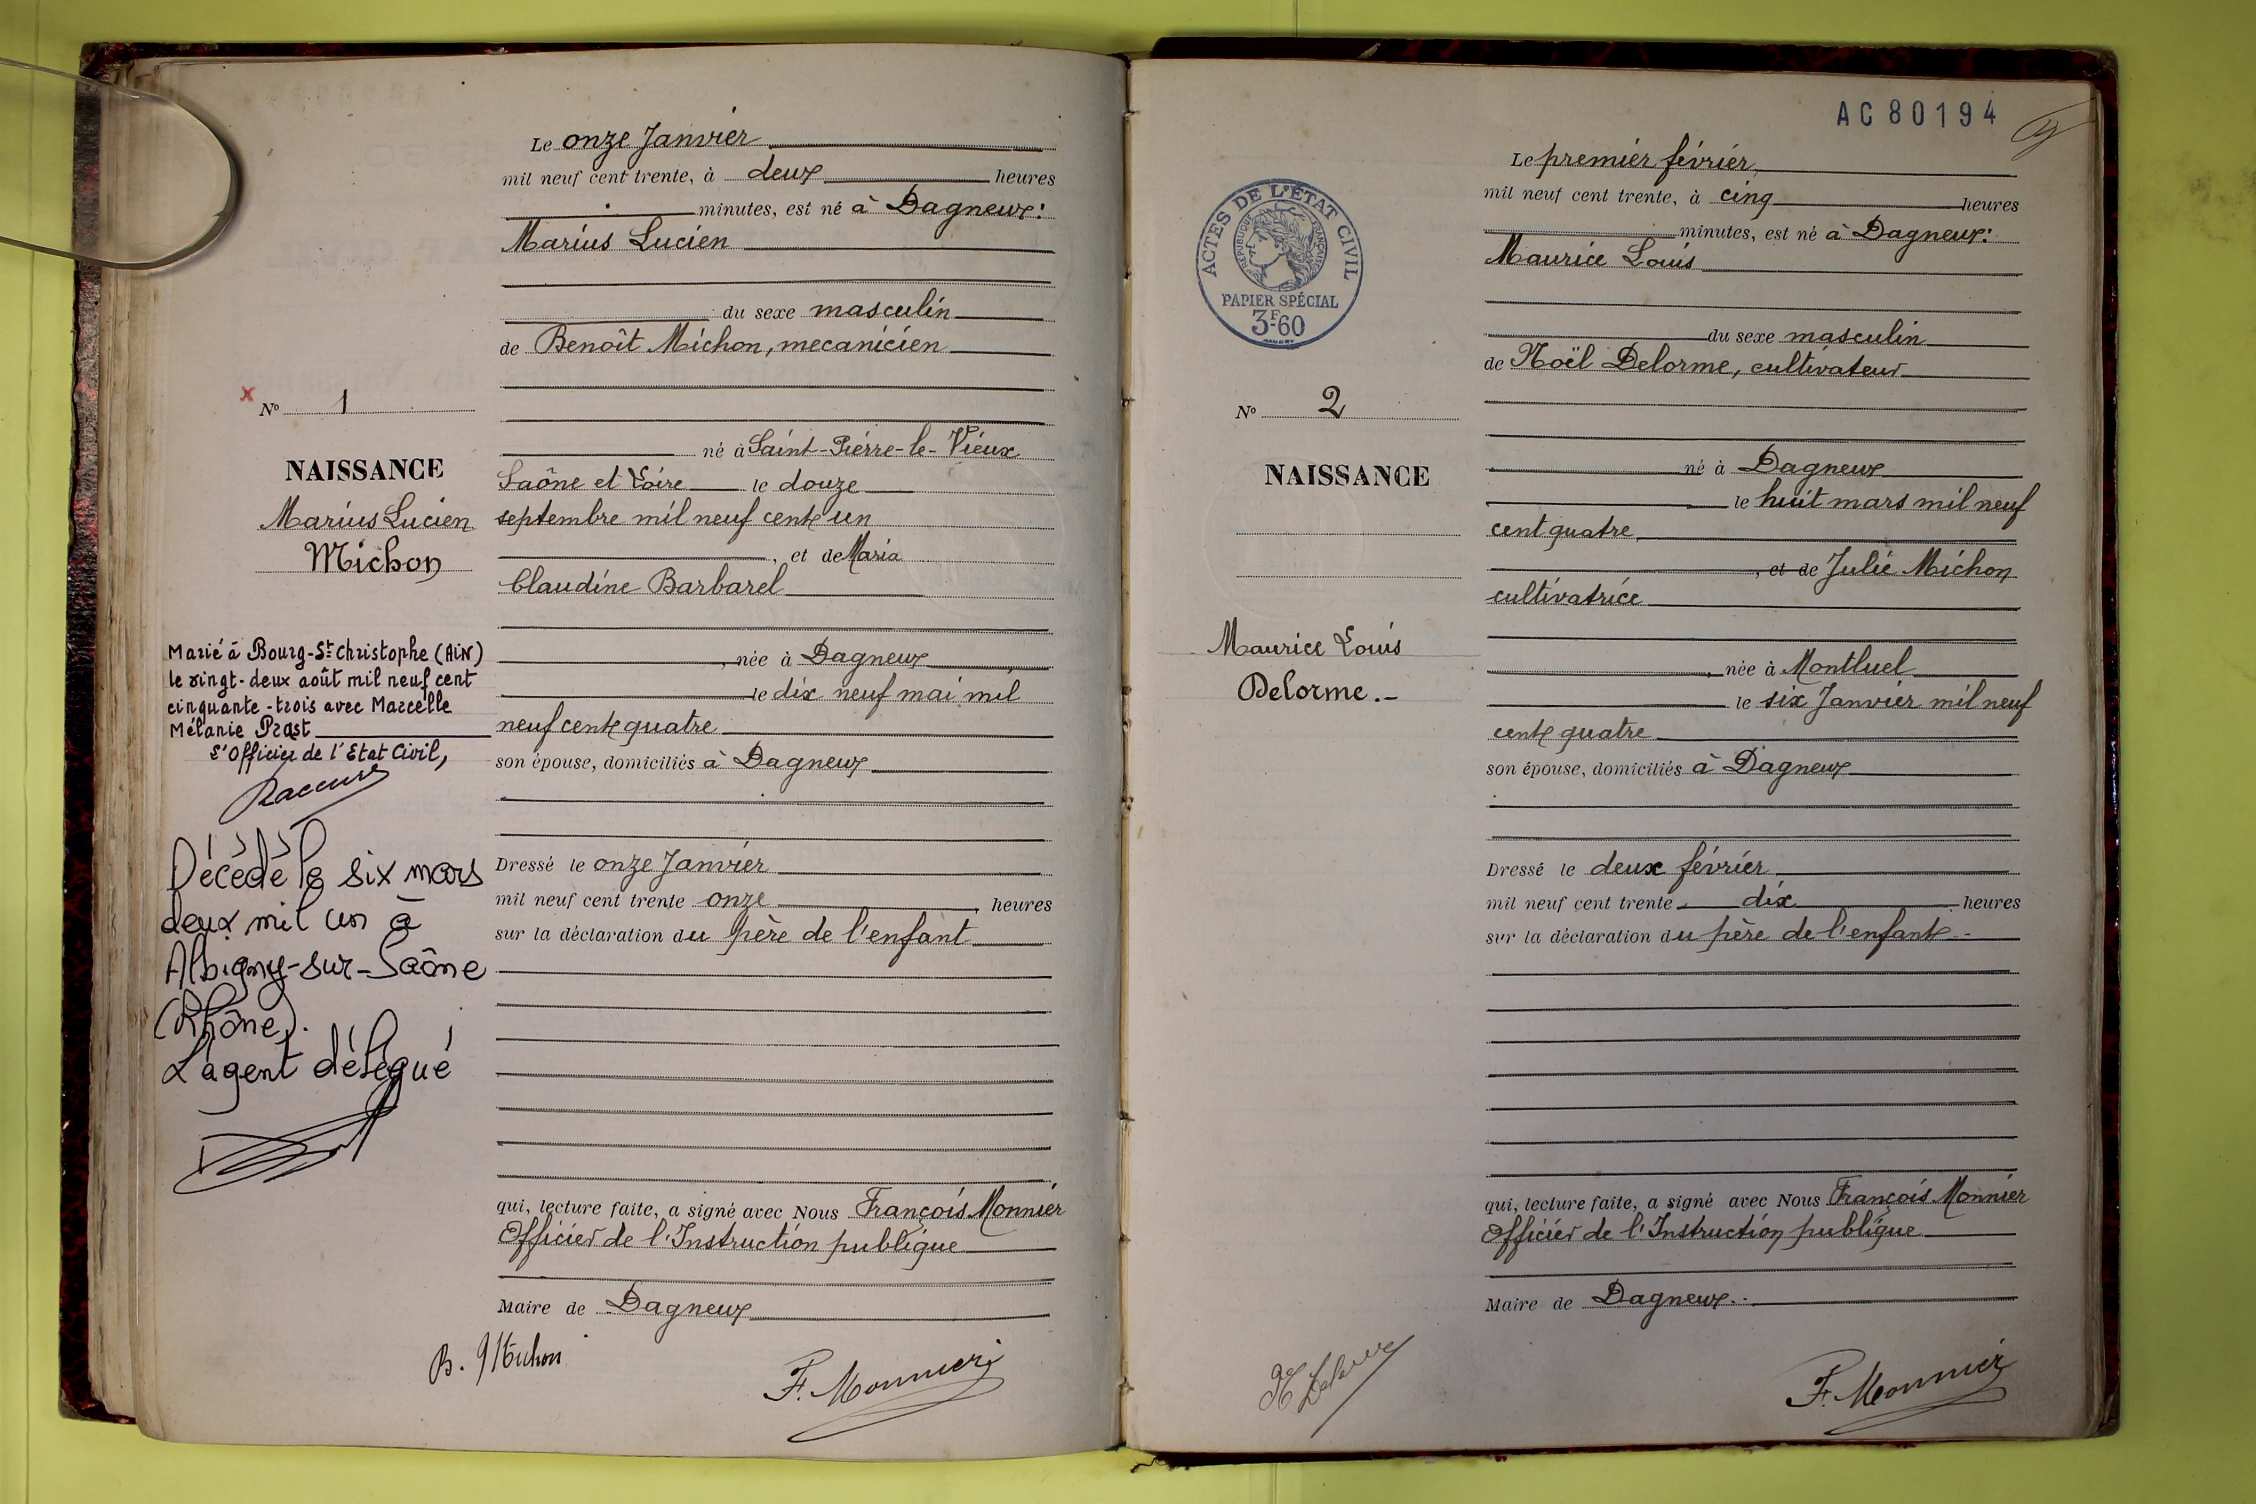 Le onze Janvier
mil neuf cent trente, à deux heures
minutes, est né à Dagneux:
Marius Lucien
du sexe masculin
de Benoît Michon, mecanicien
x
No 1
né à Saint-Pierre-le-Vieux
NAISSANCE
Saône et Loire le douze
Marius Lucien
septembre mil neuf cent un
Michon
, et de Maria
Claudine Barbarel
Marié à Bourg-St-Christophe (AIN)
le vingt-deux août mil neuf cent
cinquante-trois avec Marcelle
Mélanie Prast
L'Officier de l'Etat Civil,
, née à Dagneux
le dix neuf mai mil
neuf cent quatre
son épouse, domiciliés à Dagneux
Décédé le six mars
deux mil un à
Albigny-sur-Saône
(Rhône).
L'agent délégué
Dressé le onze Janvier
mil neuf cent trente onze heures
sur la déclaration du père de l'enfant
qui, lecture faite, a signé avec Nous François Monnier
Officier de l'Instruction publique
Maire de Dagneux
B. Michon
F. Monnier
AC80194
Le premier février,
mil neuf cent trente, à cinq heures
minutes, est né à Dagneux:
Maurice Louis
ACTES DE L'ÉTAT CIVIL
RÉPUBLIQUE FRANÇAISE
PAPIER SPÉCIAL
3F60
du sexe masculin
de Noël Delorme, cultivateur
No 2
NAISSANCE
né à Dagneux
le huit mars mil neuf
cent quatre
, et de Julie Michon
cultivatrice
Maurice Louis
Delorme.-
, née à Montluel
le six Janvier mil neuf
cent quatre
son épouse, domiciliés à Dagneux
Dressé le deux février
mil neuf cent trente dix heures
sur la déclaration du père de l'enfant
qui, lecture faite, a signé avec Nous François Monnier
Officier de l'Instruction publique
Maire de Dagneux
N Delorme
F. Monnier